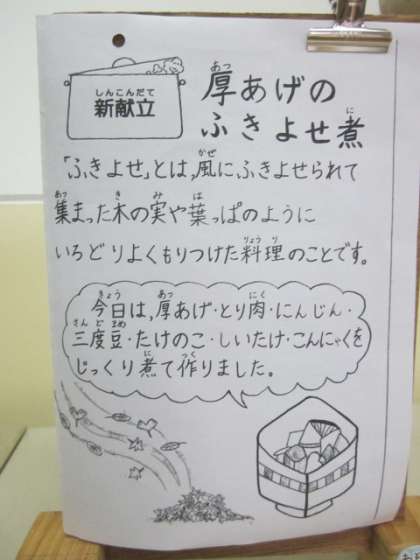 新献立
厚あげの
ふきよせ煮
「ふきよせ」とは,風にふきよせられて
集まった木の実や葉っぱのように
いろどりよくもりつけた料理のことです。
今日は,厚あげ・とり肉・にんじん・
三度豆・たけのこ・しいたけ・こんにゃくを
じっくり煮て作りました。